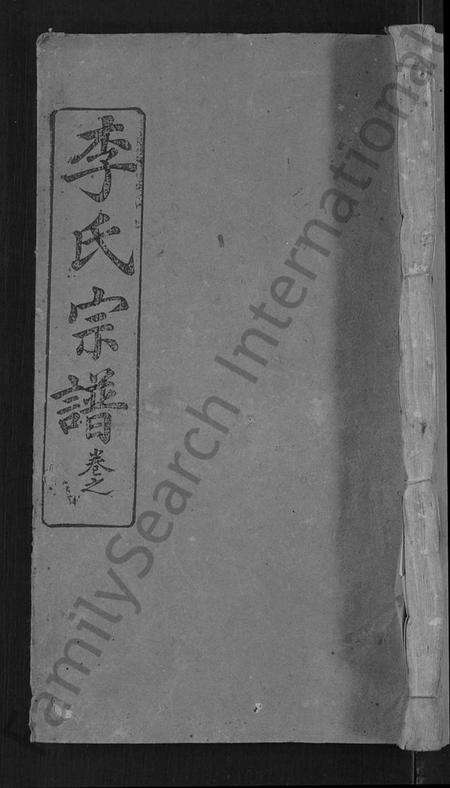 李氏宗譜卷之
FamilySearch International